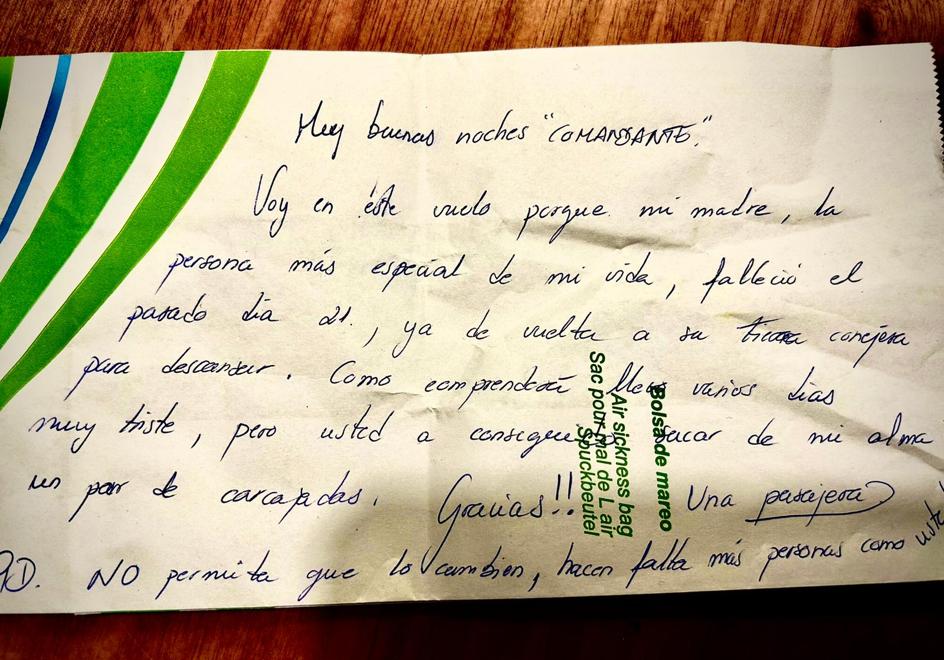 Muy buenas noches "COMANDANTE."
Voy en éste vuelo porque mi madre, la
persona más especial de mi vida, falleció el
pasado día 21., ya de vuelta a su tierra conejera
para descansar. Como comprenderá llevo varios días
muy triste, pero usted a conseguido sacar de mi alma
un par de carcajadas. Gracias!! Una pasajera
PD. NO permita que lo cambien, hacen falta más personas como usted
Bolsa de mareo
Air sickness bag
Sac pour mal de L'air
Spuckbeutel